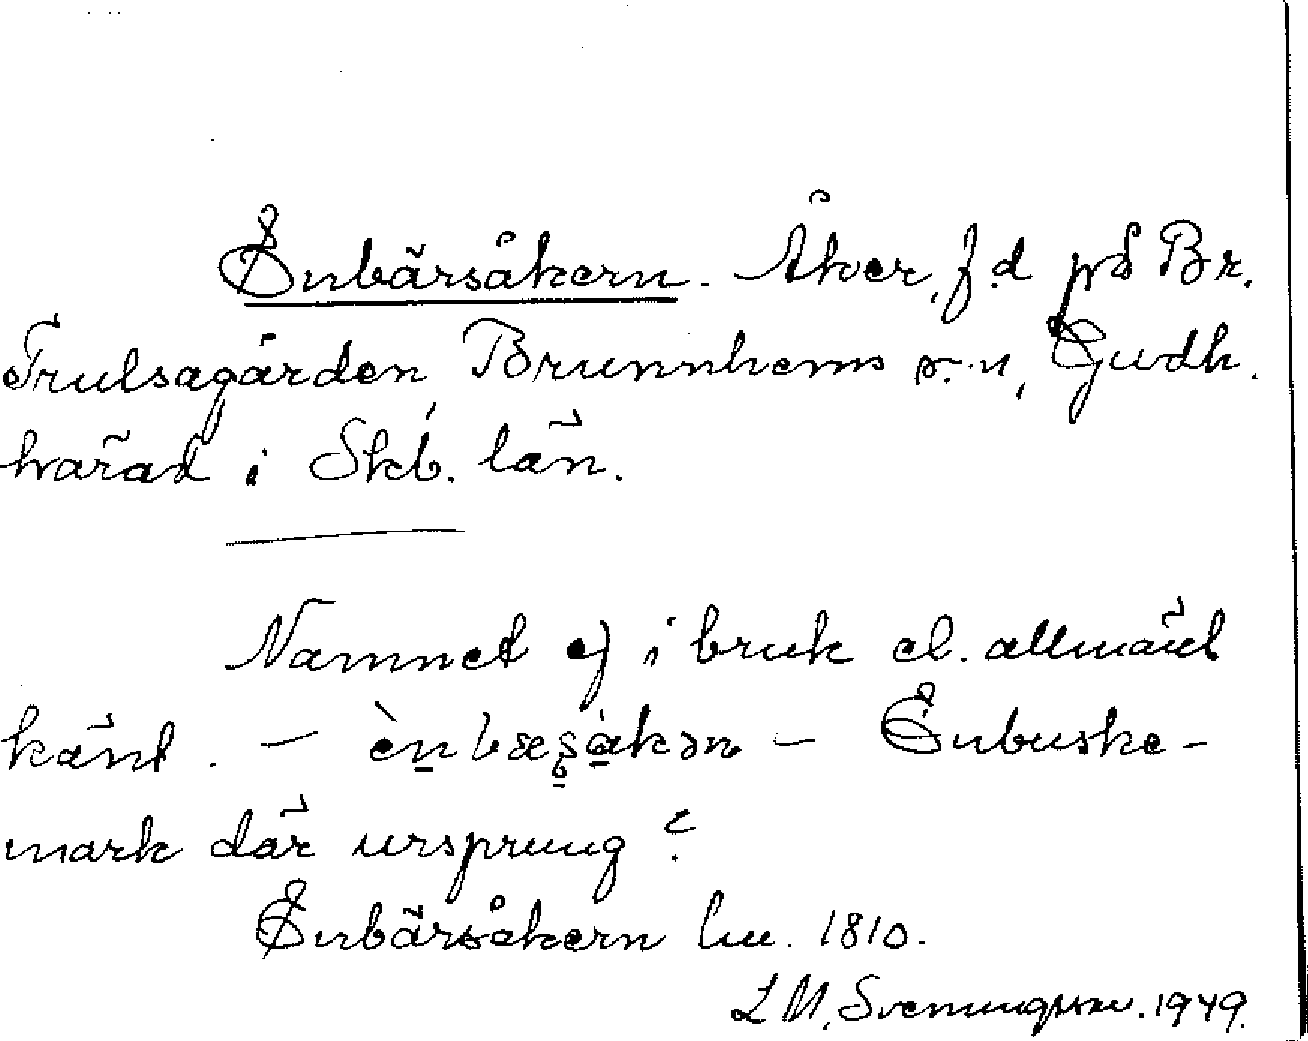 Enbärsåkern. Åker, f.d på Br.
Trulsagården, Brunnhems s:n, Gudh.
härad i Skb. län.
Namnet ej i bruk el. allmänt
känt. – èn bæʂàkən – Enbuske-
mark där ursprung?
Enbärsåkern 1810.
L M. Svenungsson. 1949.